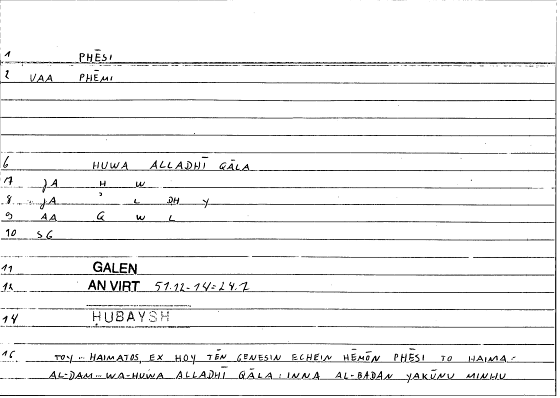 1 PHĒSI
2 VAA PHĒMI
6 HUWA ALLADHĪ QĀLA
7 JA H W
8 JA ʾ L DH Y
9 AA Q W L
10 SG
11 GALEN
12 AN VIRT 51.12-14=24.2
14 ḤUBAYSH
15 TOY - HAIMATOS, EX HOY TĒN GENESIN ECHEIN HĒMŌN PHĒSI TO HAIMA-
AL-DAM - WA-HUWA ALLADHĪ QĀLA: INNA AL-BADAN YAKŪNU MINHU